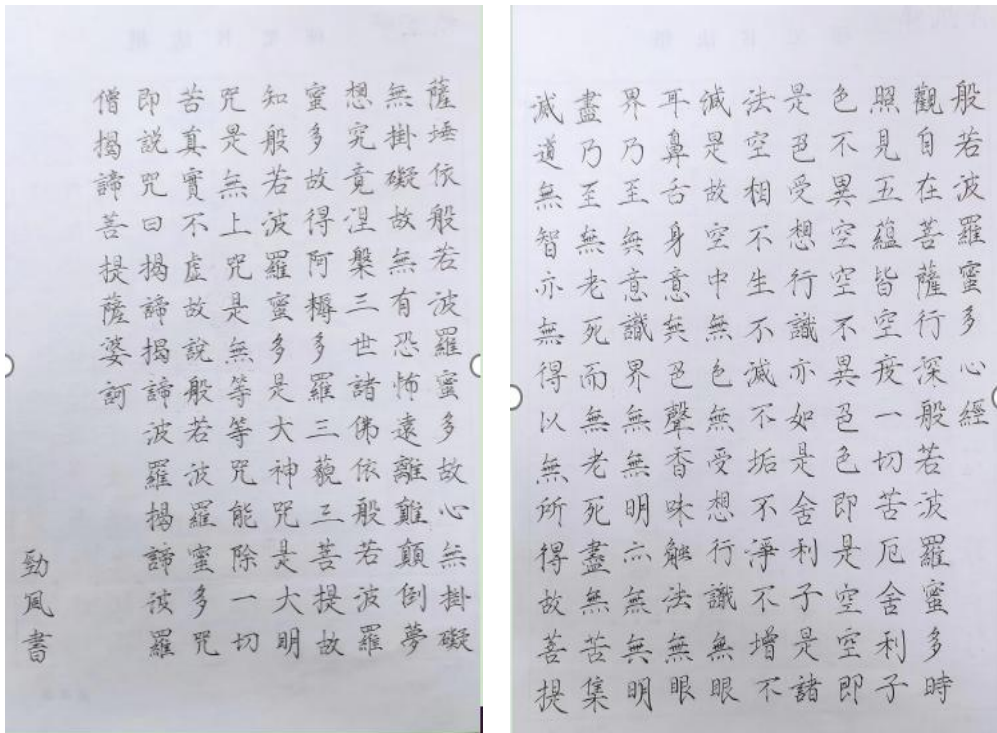 般若波羅蜜多心經
觀自在菩薩行深般若波羅蜜多時
照見五蘊皆空度一切苦厄舍利子
色不異空空不異色色即是空空即
是色受想行識亦如是舍利子是諸
法空相不生不滅不垢不淨不增不
減是故空中無色無受想行識無眼
耳鼻舌身意無色聲香味觸法無眼
界乃至無意識界無無明亦無無明
盡乃至無老死而無老死盡無苦集
滅道無智亦無得以無所得故菩提
薩埵依般若波羅蜜多故心無掛礙
無掛礙故無有恐怖遠離難顛倒夢
想究竟涅槃三世諸佛依般若波羅
蜜多故得阿耨多羅三藐三菩提故
知般若波羅蜜多是大神咒是大明
咒是無上咒是無等等咒能除一切
苦真實不虛故說般若波羅蜜多咒
即說咒曰揭諦揭諦波羅揭諦波羅
僧揭諦菩提薩婆訶
勁風書